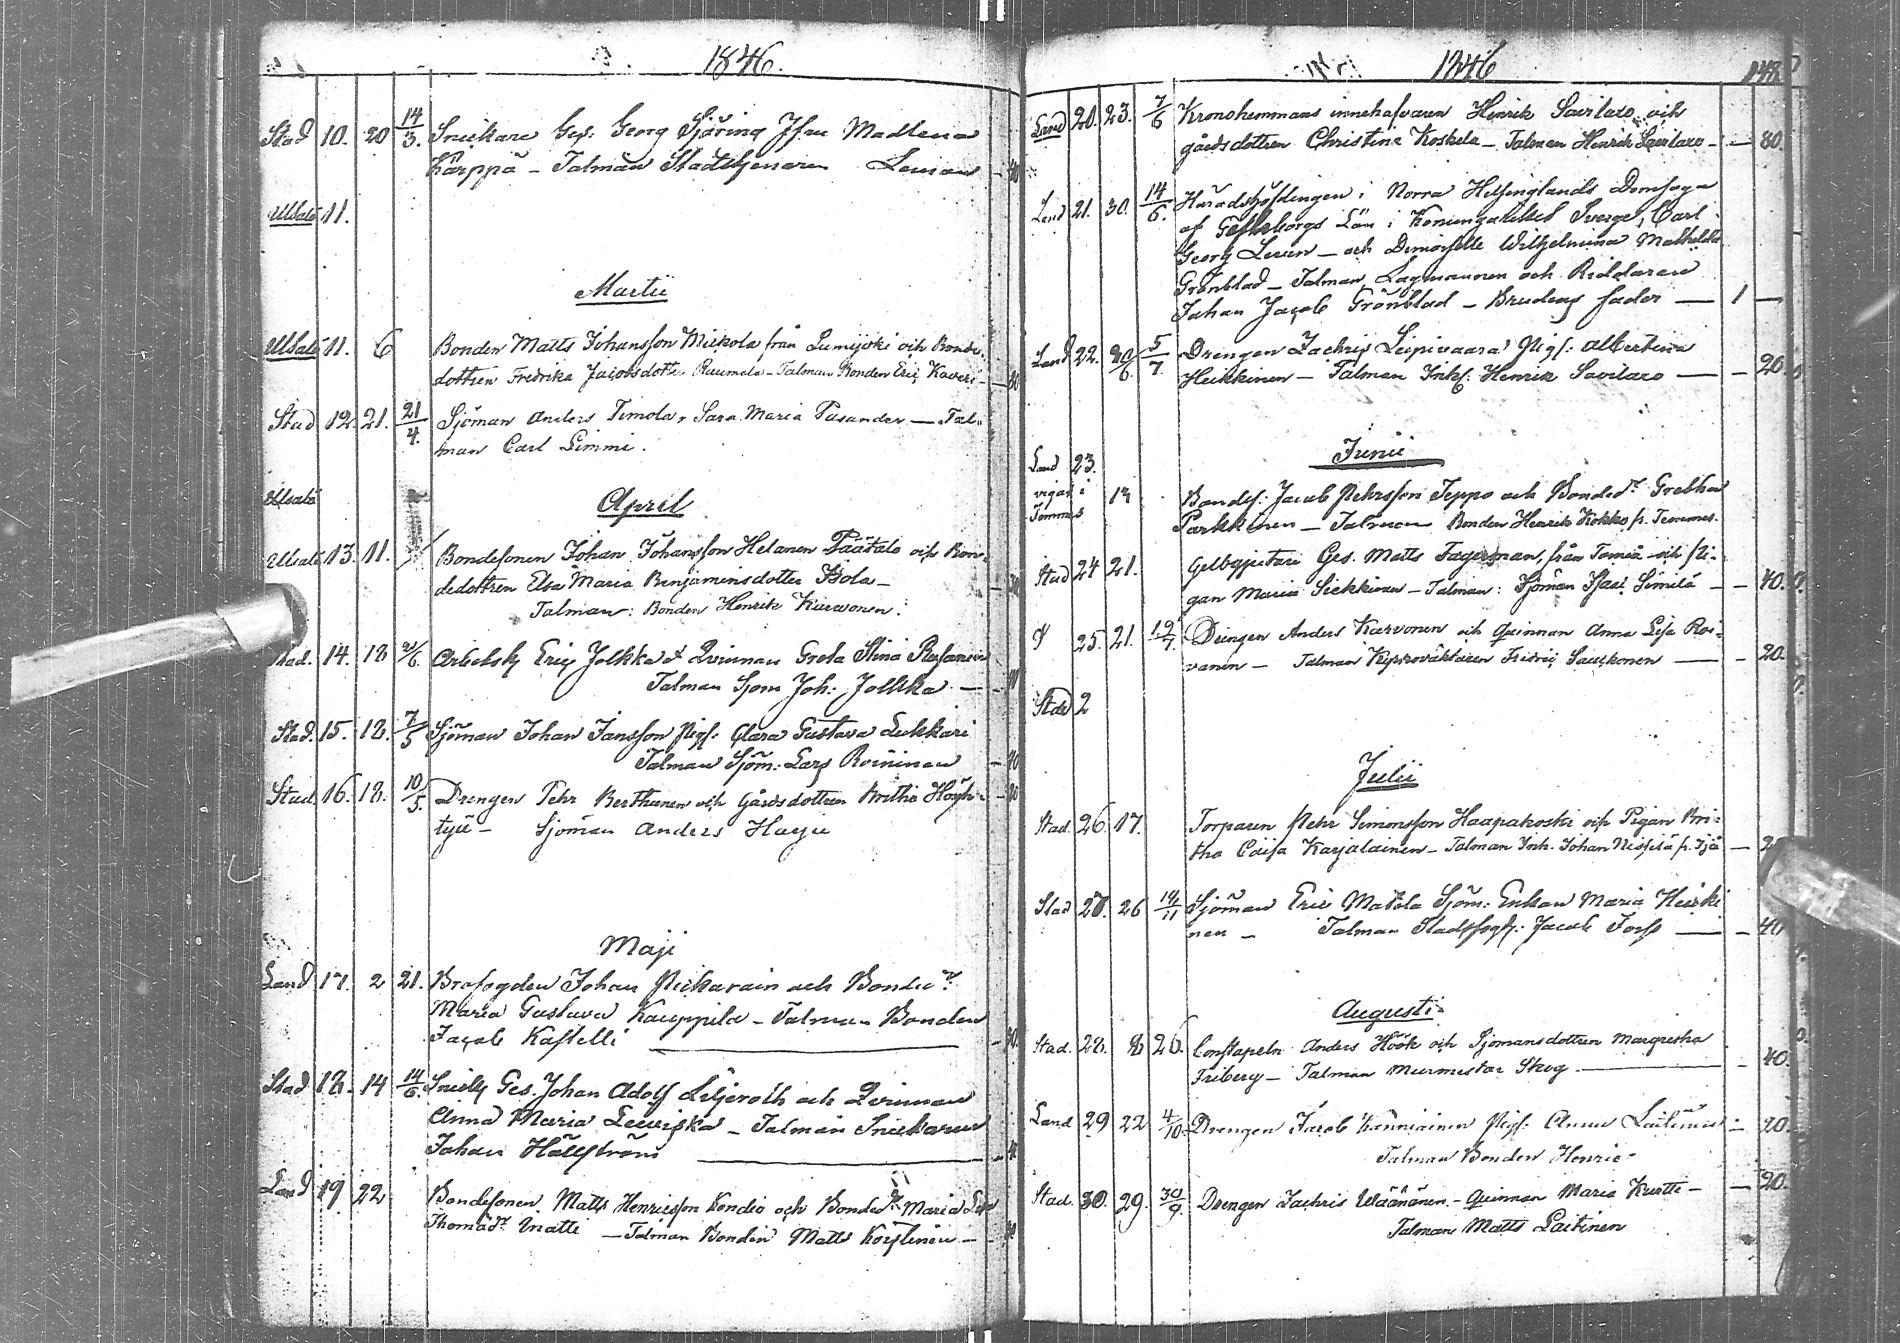 1846.
Stad 10. 20 14/3. Snickare Ges. Georg Sjöring Jfru Madlena
Karppä – Talman Stadstjenaren
Utsatt 11.
Martii
Utsatt 11. 6 Bonden Matts Johansson Mickola från Lumijoki och Bonde-
dottren Fredrika Jacobsdotter Raumela – Talman Bonden Eric Kaveri –
Stad 12. 21. 21/4. Sjöman Anders Timola, Sara Maria Pasander — Tal-
man Carl Limmi.
Utsatt
April
Utsatt 13. 11. Bondesonen Johan Johansson Helanen Päätalo och Bon-
dedottren Elsa Maria Benjaminsdotter Isola –
Talman: Bonden Henrik Karvonen.
Stad. 14. 18 Arbetsk Eric Jolkka & Qvinnan Greta Stina
Talman Sjom Joh: Jolkka —
Stad. 15. 18. 7/5 Sjöman Johan Jansson Pigs: Clara Gustava Lukkari
Talman Sjöm: Lars Roininen – 40
Stad. 16. 18. 10/5 Drengen Pehr Berthunen och Gårdsdottren Britha Höyh-
tyü – Sjöman Anders Harju
Maji
Land 17. 2 21. Brofogden Johan och Bonde dr
Maria Gustava Kauppila – Talman Bonden
Jacob Kastelli
Stad 18. 14 14/6. Snick Ges. Johan Adolf Liljeroth och Qvinnan
Anna Maria Leiviska – Talman Snickaren
Johan Hällström
Land 19 22 Bondesonen Matts Henricsson Kondio och Bonde dr Maria
Thomædr Matti – Talman Bonden Matts Koistinen –
1846
Land 20. 23. 7/6 Kronohemmans innehafvaren Henrik Savilaxo och
gårdsdottren Christina Koskela – Talman Henrik Savilaxo – 80.
Land 21. 30. 14/6. Häradshöfdingen i Norra Helsinglands Domsaga
af Gefleborgs Län i Konungariket Sverge, Carl
Georg – och Demoiselle Wilhelmina Mathilda
Grönblad – Talman Lagmannen och Riddaren
Johan Jacob Grönblad – Brudens fader — 1 —
Land 22. 20/6. 5/7. Drengen Zachris Leipivaara Pigs: Albertina
Heikkinen – Talman Inhs: Henrik Savilaxo — 20.
Junii
Land 23.
vigde i 14 Bondes: Jacob Pehrsson Seppo och Bonde dr Gretha
Temmes Parkkinen – Talman Bonden Henrik Kokko fr. Temmes.
Stad 24 21. Gelbgjutare Ges. Matts Fagerman, från Torneå och Pi-
gan Maria Siekkinen – Talman: Sjöman Isac Similä – 40.
25. 21. 12/7. Drengen Anders Karvonen och Quinnan Anna Lisa Roi-
vanen – Talman Kyrkoväktaren Fredric Saukkonen — 20.
Stad 2
Julii
Stad. 26. 17. Torparen Pehr Simonsson Haapakoski och Pigan Bri-
tha Caisa Karjalainen – Talman Inh. Johan
Stad 27. 26 14/11 Sjöman Eric Matola Sjöm: Enkan Maria Heikki
nen – Talman Stadsfogs: Jacob Forss — 40
Augusti
Stad. 28. 8 26. Constapeln Anders Höök och Sjömansdottren Margretha
Friberg – Talman Murmestar Skog — 40.
Land 29 22 4/10. Drengen Jacob Kanniainen Pigs: Anna Laitinen – 20.
Talman Bonden Henric
Stad. 30. 29. 30/9. Drengen Zachris Wäänänen – Quinnan Maria Kurtti – 20.
Talman Matts Laitinen